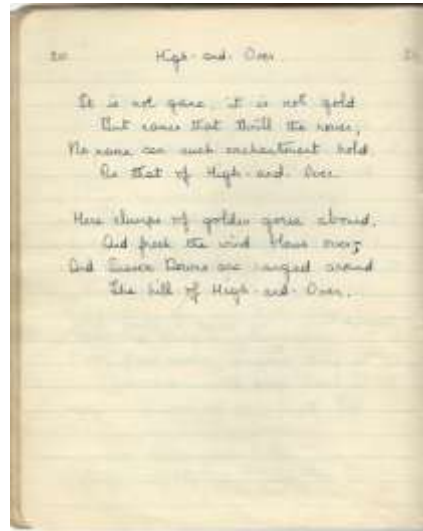 20 High-and-Over
It is not game, it is not gold
But names that thrill the rover;
No name can such enchantment hold
As that of High-and-Over.
Here clumps of golden gorse abound,
And fresh the wind blows over;
And Sussex Downs are ranged around
The hill of High-and-Over.